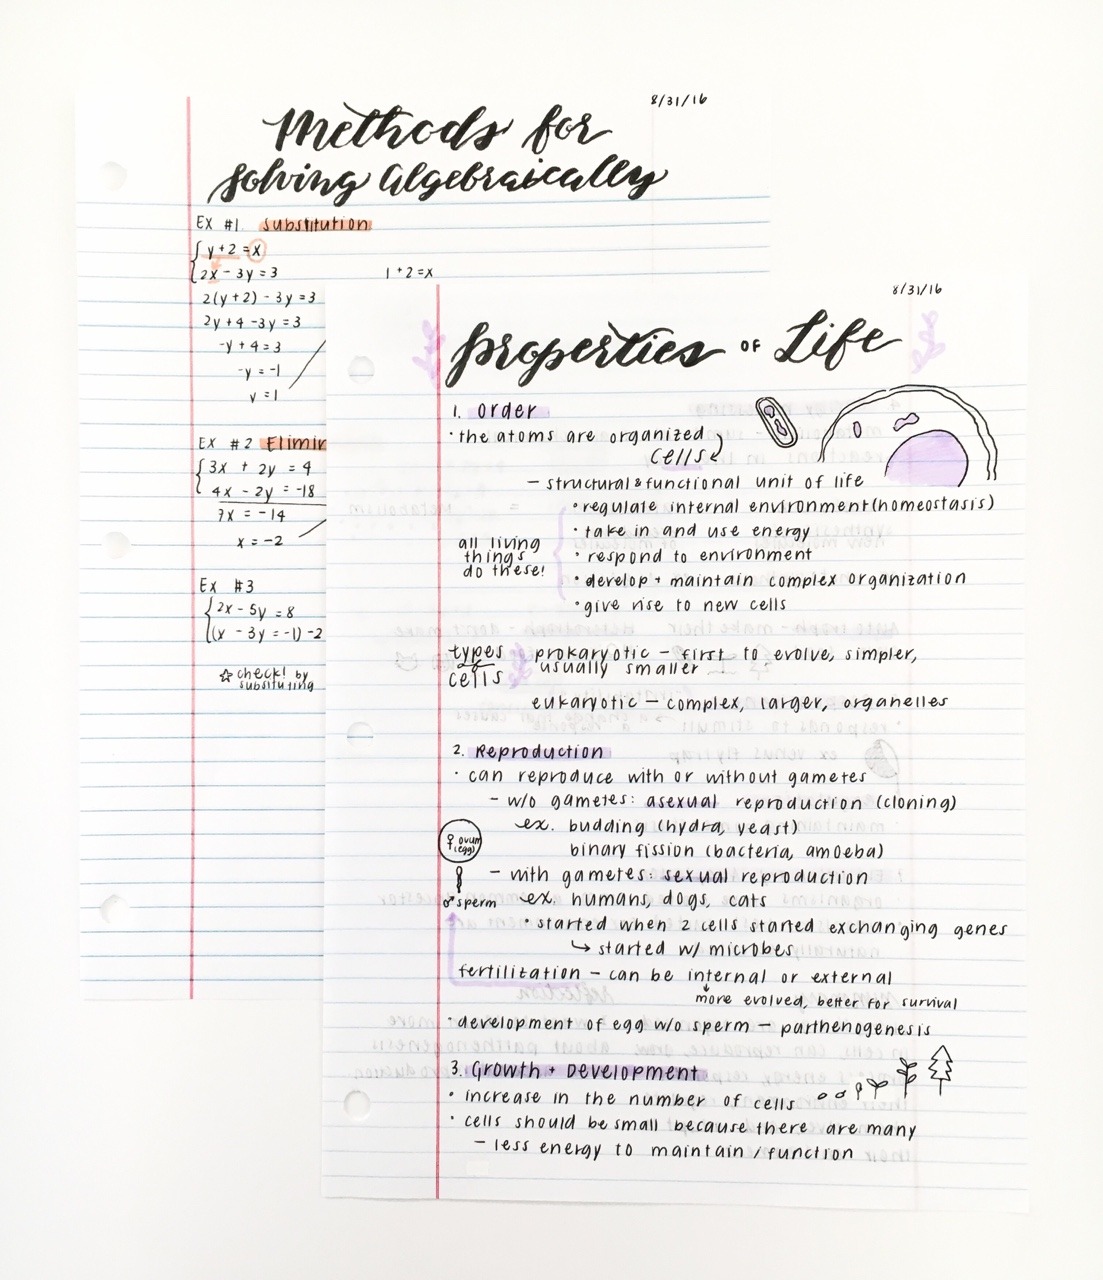 8/31/16
Methods for
Solving Algebraically
EX #1 substitution
y + 2 = x
2x - 3y = 3
1 + 2 = x
2(y+2) - 3y = 3
2y + 4 - 3y = 3
-y + 4 = 3
-y = -1
y = 1
EX #2 Elimin
3x + 2y = 4
4x - 2y = -18
7x = -14
x = -2
EX #3
2x - 5y = 8
(x - 3y = -1) -2
☆ check! by
substituting
8/31/16
Properties OF Life
1. Order
· the atoms are organized
cells
- structural & functional unit of life
· regulate internal environment (homeostasis)
· take in and use energy
· respond to environment
· develop + maintain complex organization
· give rise to new cells
all living
things
do these!
types
of
cells
prokaryotic - first to evolve, simpler,
usually smaller
eukaryotic - complex, larger, organelles
2. Reproduction
· can reproduce with or without gametes
- w/o gametes: asexual reproduction (cloning)
ex. budding (hydra, yeast)
binary fission (bacteria, amoeba)
♀ ovum
(egg)
- with gametes: sexual reproduction
♂ sperm
ex. humans, dogs, cats
· started when 2 cells started exchanging genes
↳ started w/ microbes
fertilization - can be internal or external
↓
more evolved, better for survival
· development of egg w/o sperm - parthenogenesis
3. Growth + Development
· increase in the number of cells
· cells should be small because there are many
- less energy to maintain / function